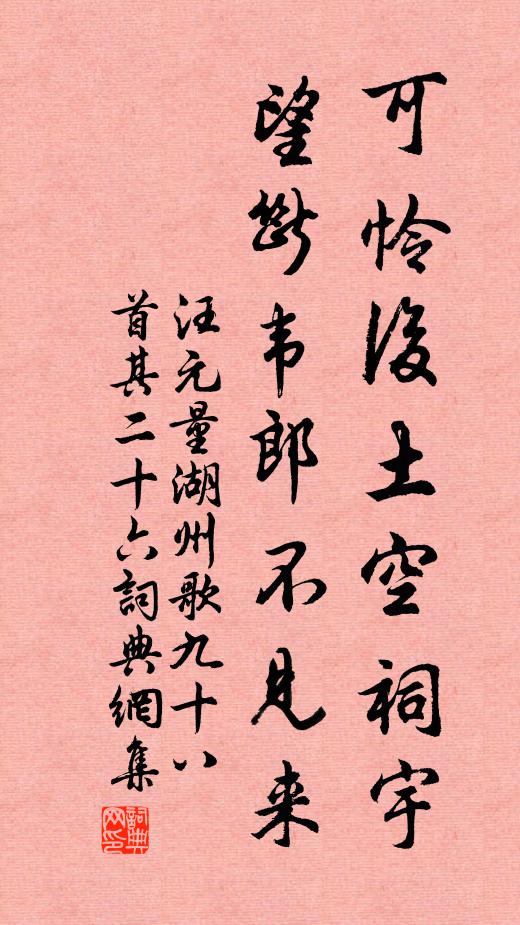 可怜後土空祠宇
望斷韦郎不見来
汪元量湖州歌九十八
首其二十六詞典網集
詞典
网印